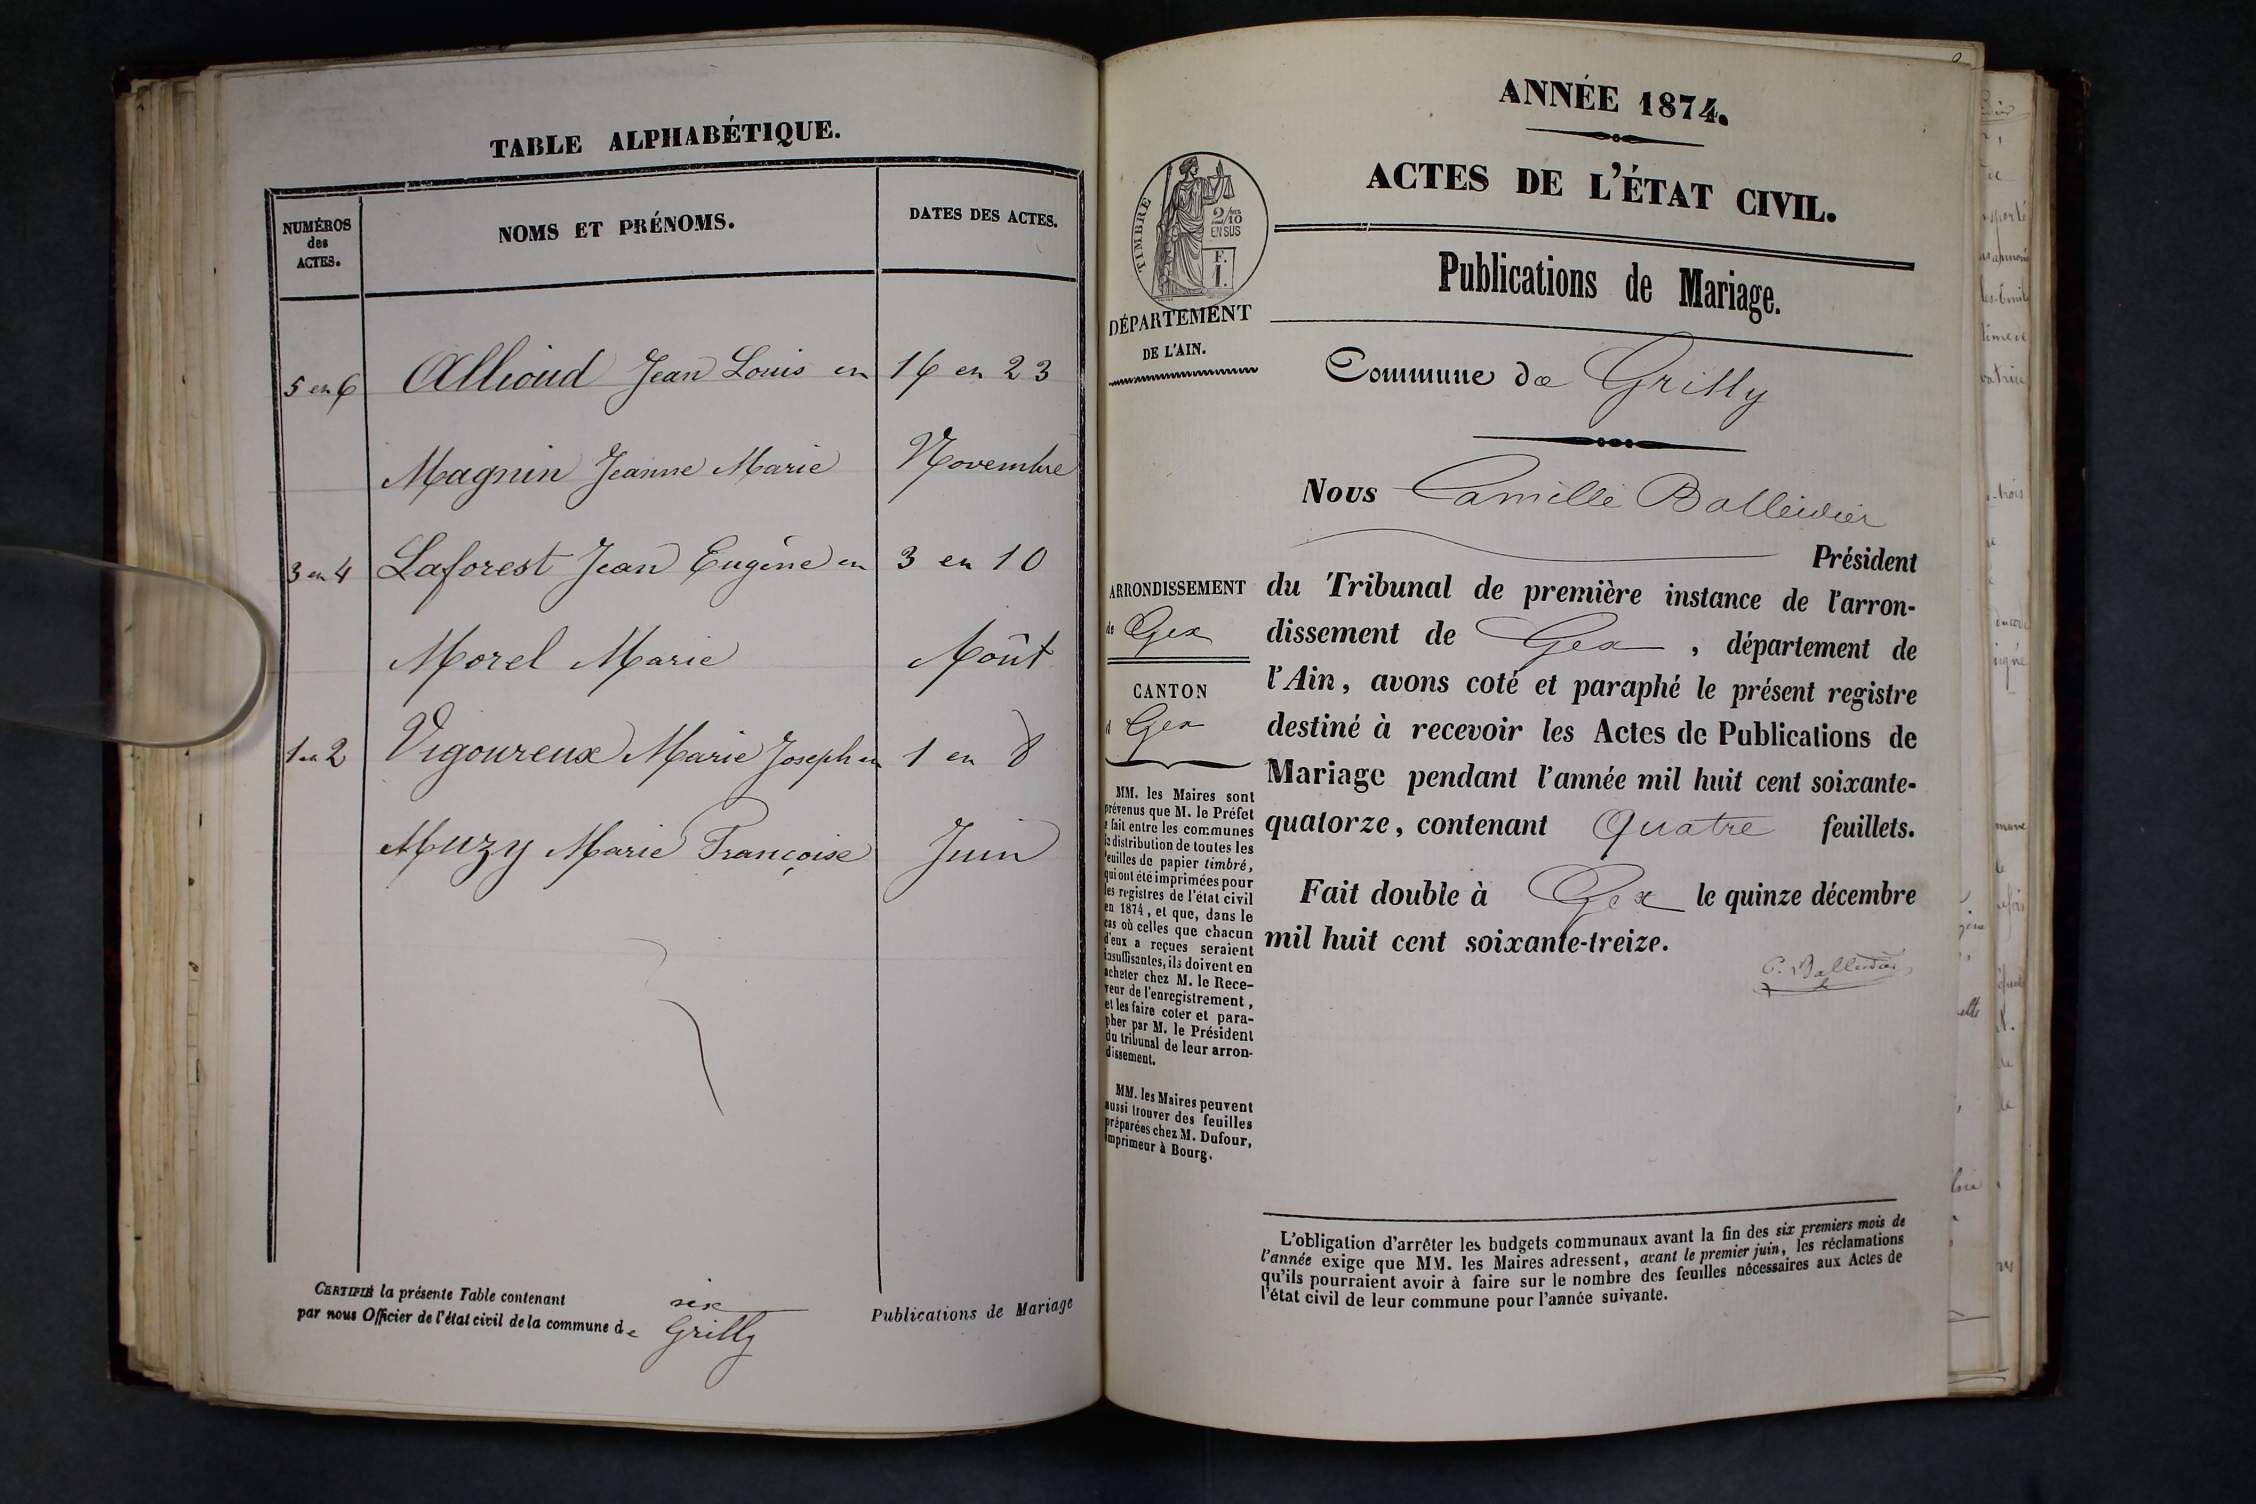 TABLE ALPHABÉTIQUE.
NUMÉROS
des
ACTES.
NOMS ET PRÉNOMS.
DATES DES ACTES.
5 en 6 Allioud Jean Louis en 16 en 23
Magnin Jeanne Marie Novembre
3 en 4 Laforest Jean Eugène en 3 en 10
Morel Marie Août
1 en 2 Vigoureux Marie Joseph en 1 en 8
Muzy Marie Françoise Juin
CERTIFIÉ la présente Table contenant six Publications de Mariage
par nous Officier de l'état civil de la commune de Grilly
ANNÉE 1874.
ACTES DE L'ÉTAT CIVIL.
Publications de Mariage.
TIMBRE
2/10
EN SUS
F.
1.
DÉPARTEMENT
DE L'AIN.
ARRONDISSEMENT
de Gex
CANTON
d Gex
MM. les Maires sont
prévenus que M. le Préfet
a fait entre les communes
la distribution de toutes les
feuilles de papier timbré,
qui ont été imprimées pour
les registres de l'état civil
en 1874, et que, dans le
cas où celles que chacun
d'eux a reçues seraient
insuffisantes, ils doivent en
acheter chez M. le Rece-
veur de l'enregistrement,
et les faire coter et para-
pher par M. le Président
du tribunal de leur arron-
dissement.
MM. les Maires peuvent
aussi trouver des feuilles
préparées chez M. Dufour,
imprimeur à Bourg.
Commune de Grilly
Nous Camille Balleidier
Président
du Tribunal de première instance de l'arron-
dissement de Gex, département de
l'Ain, avons coté et paraphé le présent registre
destiné à recevoir les Actes de Publications de
Mariage pendant l'année mil huit cent soixante-
quatorze, contenant Quatre feuillets.
Fait double à Gex le quinze décembre
mil huit cent soixante-treize.
C. Balleidier
L'obligation d'arrêter les budgets communaux avant la fin des six premiers mois de
l'année exige que MM. les Maires adressent, avant le premier juin, les réclamations
qu'ils pourraient avoir à faire sur le nombre des feuilles nécessaires aux Actes de
l'état civil de leur commune pour l'année suivante.